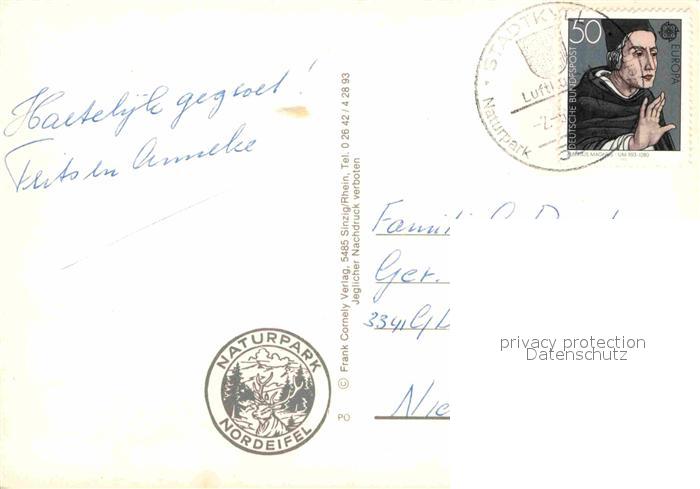 Hartelijk gegroet!
Frits en Anneke
© Frank Cornely Verlag, 5485 Sinzig/Rhein, Tel. 0 26 42 / 4 28 93
Jeglicher Nachdruck verboten
NATURPARK
NORDEIFEL
PO
STADTKYLL
Luft
Naturpark
50
DEUTSCHE BUNDESPOST
EUROPA
ALBERTUS MAGNUS · UM 1193-1280
Famili
Ger.
3341G
Nie
privacy protection
Datenschutz